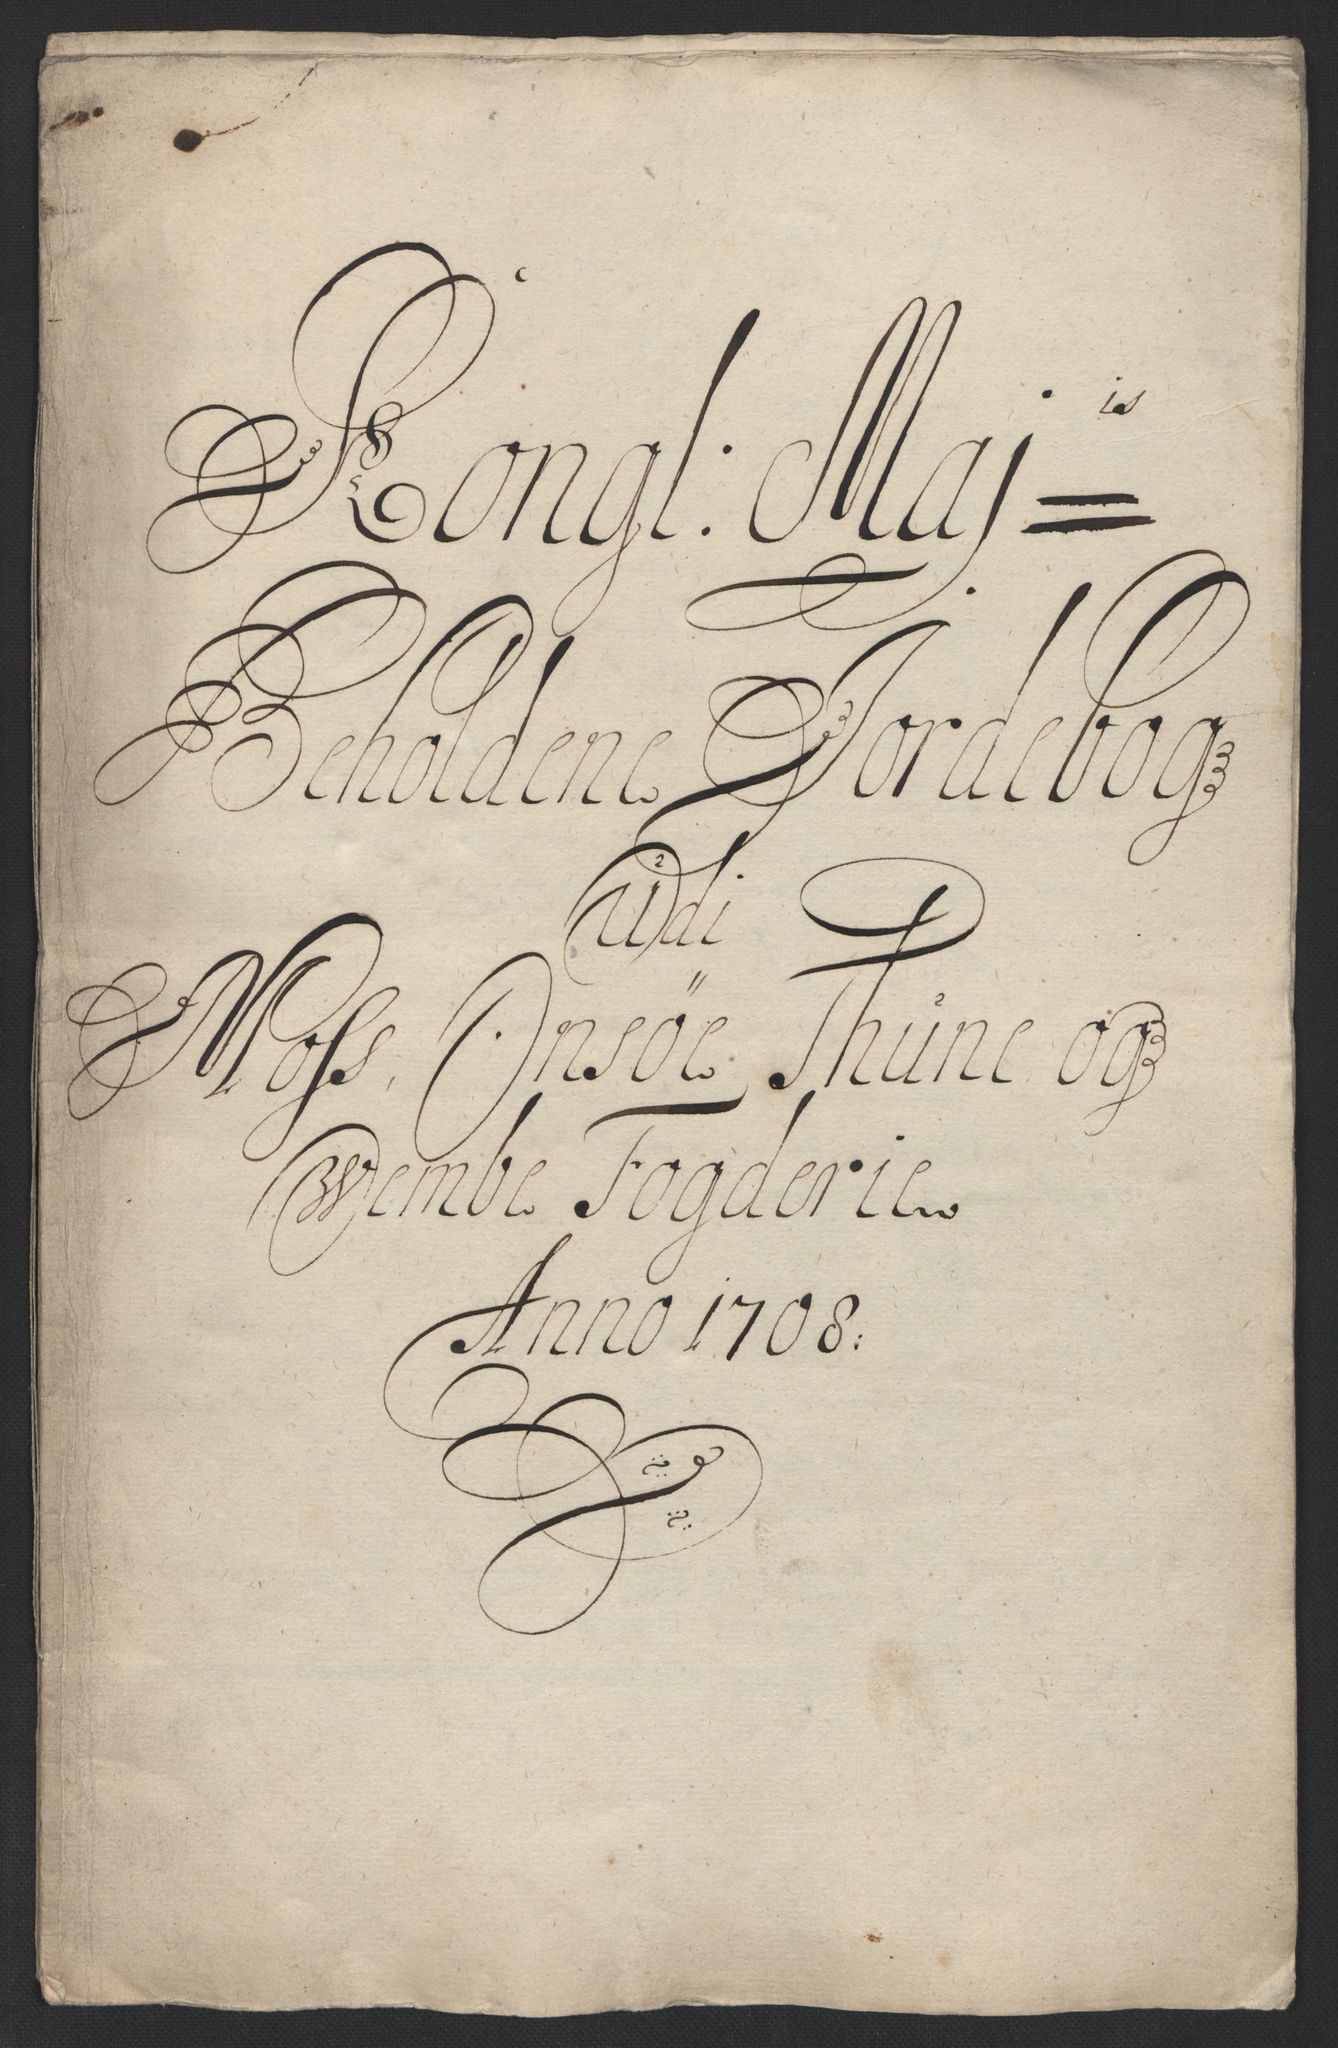 Kongl: Maj:is
Beholdene Jordebog
Udi
Moss, Onsöe, Thune og
Wembe Fogderie
Anno 1708: